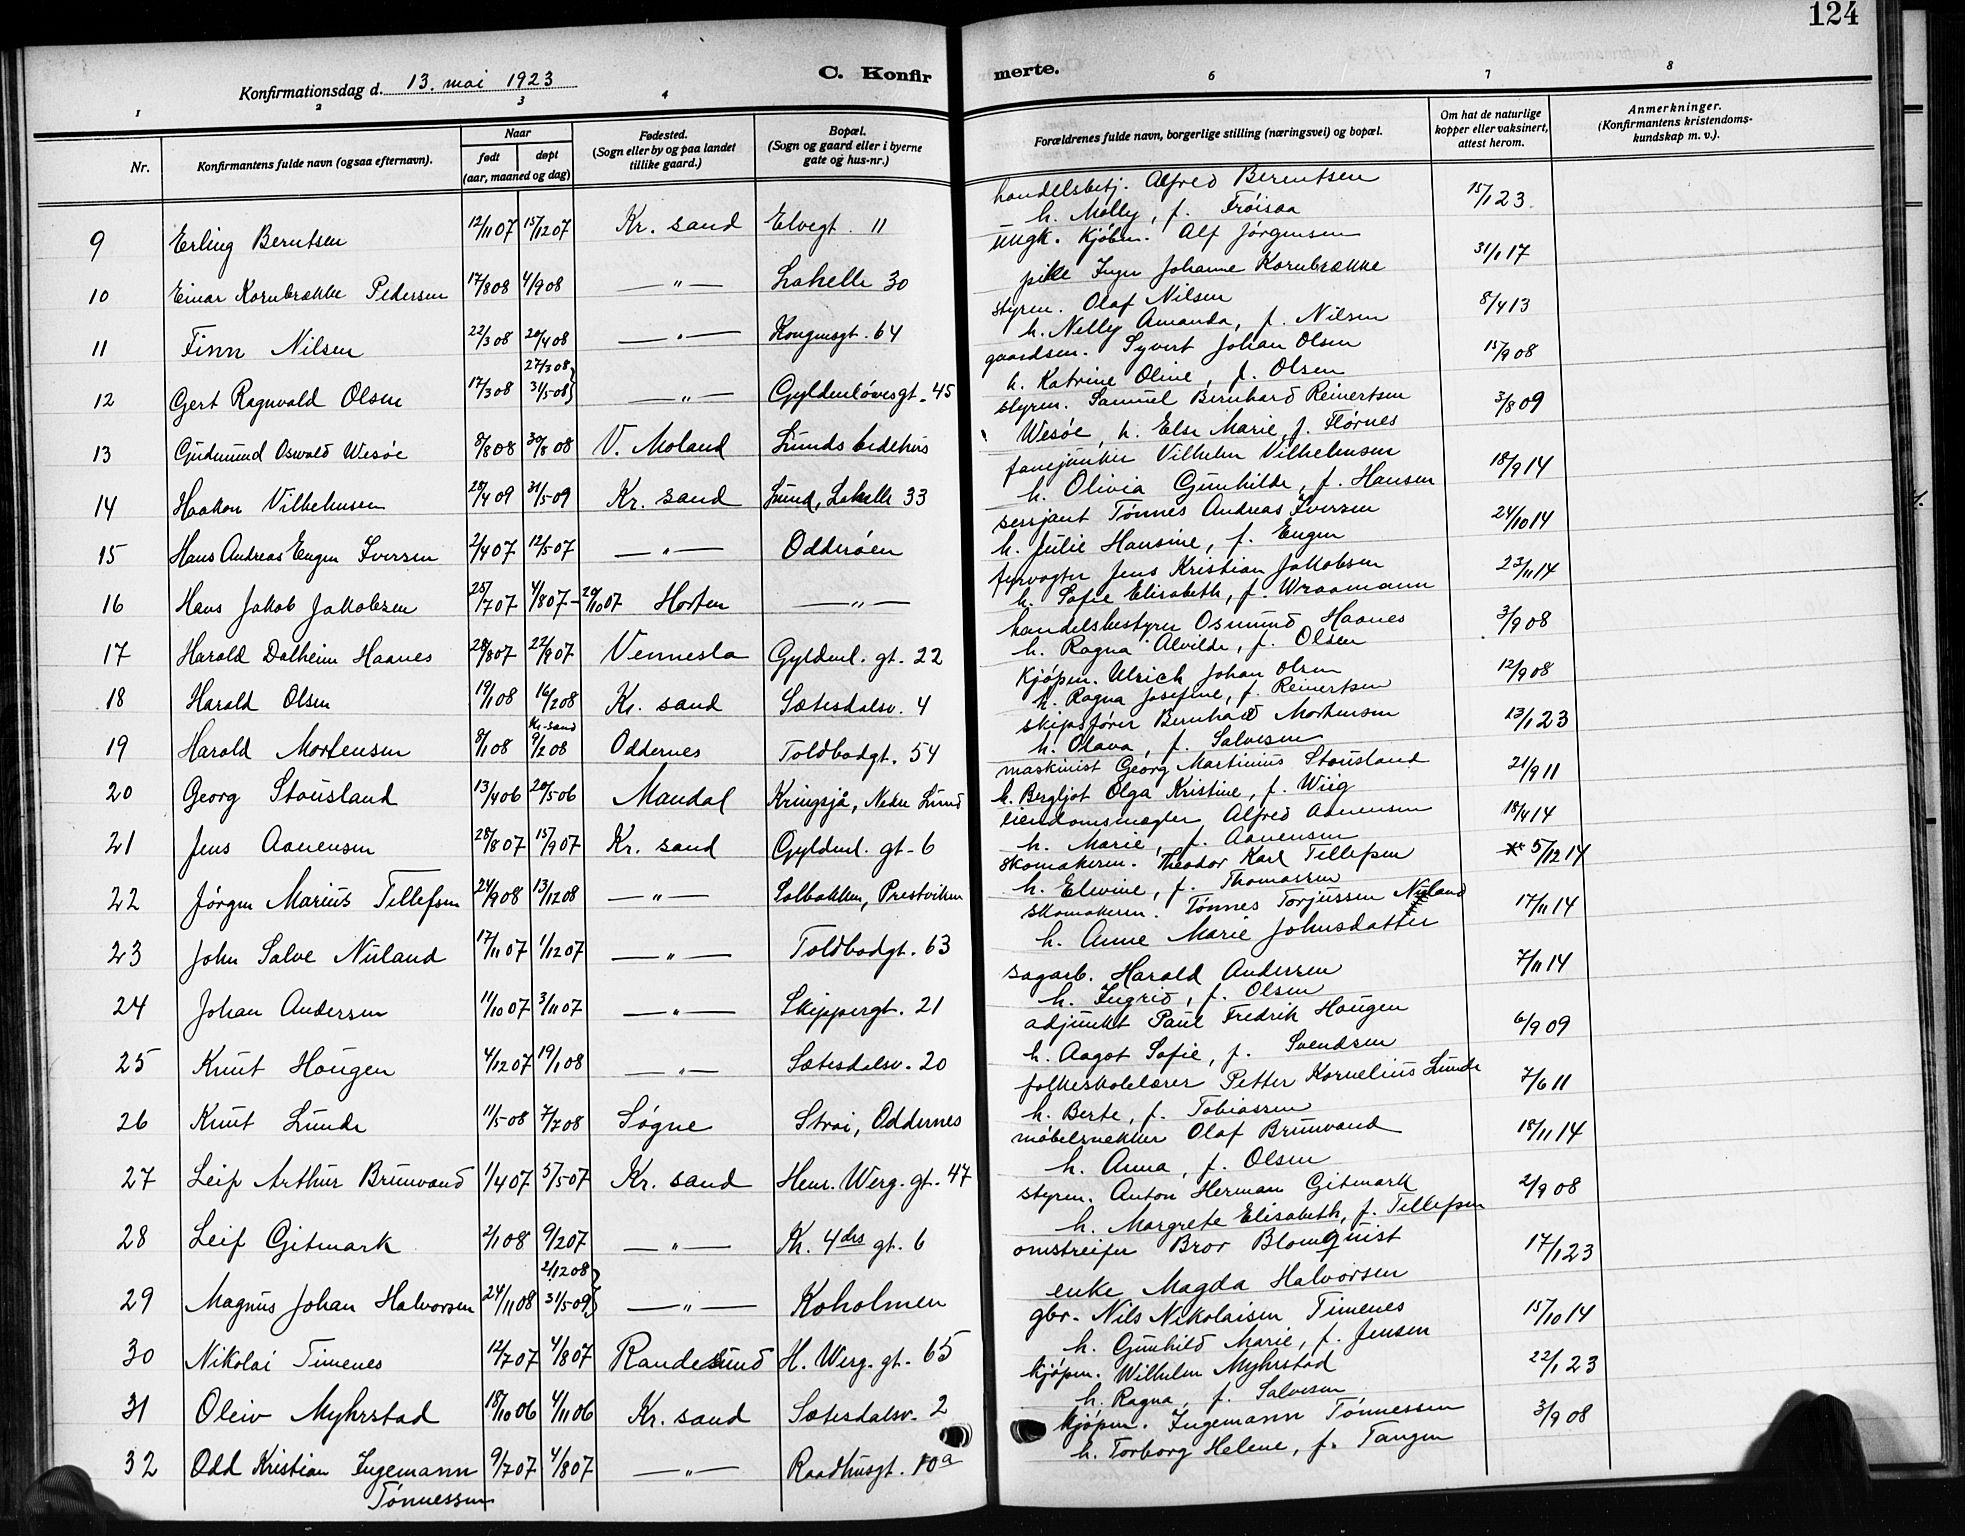 124
C. Konfir
merte.
Konfirmationsdag d. 13. mai 1923
1 2 3 4 6 7 8
Nr. Konfirmantens fulde navn (ogsaa efternavn). Naar født døpt (aar, maaned og dag) Fødested. (Sogn eller by og paa landet tillike gaard.) Bopæl. (Sogn og gaard eller i byerne gate og hus-nr.) Forældrenes fulde navn, borgerlige stilling (næringsvei) og bopæl. Om hat de naturlige kopper eller vaksinert, attest herom. Anmerkninger. (Konfirmantens kristendoms-kundskap m. v.).
9 Erling Berntsen 12/11 07 15/12 07 Kr. sand Elvegt. 11 handelsbetj. Alfred Berentsen
h. Molly, f. Frøisaa 15/1 23.
10 Einar Kornbrække Pedersen 17/8 08 4/9 08 — " — Lahelle 30 ungk. kjøbm. Alf Jørgensen
pike Inger Johanne Kornbrække 31/1 17
11 Finn Nilsen 22/3 08 20/4 08 — " — Kongensgt. 64 styrm. Olaf Nilsen
h. Nelly Amanda, f. Nilsen 8/4 13
12 Gert Ragnvald Olsen 17/3 08 27/3 08 31/5 08 — " — Gyldenløvesgt. 45 gaardsm. Syvert Johan Olsen
h. Katrine Oline, f. Olsen 15/9 08
13 Gudmund Oswald Wesøe 8/8 08 30/8 08 V. Moland Lunds bedehus styrm. Samuel Bernhard Reinertsen
Wesøe, h. Else Marie, f. Flørnes 3/8 09
14 Haakon Vilhelmsen 28/4 09 31/5 09 Kr. sand Lund, Lahelle 33 fanejunker Vilhelm Vilhelmsen
h. Olivia Gunhilde, f. Hansen 18/9 14
15 Hans Andreas Eugen Iversen 2/4 07 12/5 07 — " — Odderøen sersjant Tønnes Andreas Iversen
h. Julie Hansine, f. Eugen 24/10 14
16 Hans Jakob Jakobsen 25/7 07 4/8 07 - 20/10 07 Horten — " — fyrvogter Jens Kristian Jakobsen
h. Sofie Elisabeth, f. Wraamann 23/11 14
17 Harald Dalheim Haanes 28/8 07 22/9 07 Vennesla Gyldenl. gt. 22 handelsbestyrer Osmund Haanes
h. Ragna Alvilde, f. Olsen 3/9 08
18 Harald Olsen 19/1 08 16/2 08 Kr. sand Sætesdalsv. 4 Kjøpm. Ulrick Johan Olsen
h. Ragna Josefine, f. Reinertsen 12/9 08
19 Harald Mortensen 8/1 08 Kr. sand 9/2 08 Oddernes Toldbodgt. 54 skipsfører Bernhard Mortensen
h. Olava, f. Salvesen 13/1 23
20 Georg Stousland 13/4 06 20/5 06 Mandal Kringsjå, Nedre Lund maskinist Georg Martinius Stousland
h. Bergljot Olga Kristine, f. Wiig 21/9 11
21 Jens Aanensen 28/8 07 15/9 07 Kr. sand Gyldenl. gt. 6 eiendomsmegler Alfred Aanensen
h. Marie, f. Aanensen 18/4 14
22 Jørgen Marius Tellefsen 24/9 08 13/12 08 — " — Solbakken, Prestviken skomakerm. Theodor Karl Tellefsen
h. Elevine, f. Thomassen 5/12 14
23 John Salve Nuland 17/11 07 1/12 07 — " — Toldbodgt. 63 skomakerm. Tønnes Torjussen Nuland
h. Anne Marie Johnsdatter 17/11 14
24 Johan Andersen 11/10 07 3/11 07 — " — Skippergt. 21 sagarb. Harald Andersen
h. Ingrid, f. Olsen 7/11 14
25 Knut Hougen 4/12 07 19/1 08 — " — Sætesdalsv. 20 adjunkt Paul Fredrik Hougen
h. Aagot Sofie, f. Svendsen 6/9 09
26 Knut Lunde 11/5 08 7/7 08 Søgne Strai, Oddernes folkeskolelærer Petter Kornelius Lunde
h. Berte, f. Tobiassen 7/6 11
27 Leif Arthur Brunvand 1/4 07 5/5 07 Kr. sand Henr. Werg. gt. 47 møbelsnekker Olaf Brunvand
h. Anna, f. Olsen 18/11 14
28 Leif Gitmark 2/1 08 9/2 07 — " — Kr. 4des gt. 6 styrm. Anton Herman Gitmark
h. Margrete Elisabeth, f. Tellefsen 2/9 08
29 Magnus Johan Halvorsen 24/11 08 2/12 08 31/5 09 — " — Koholmen omstreifer Bror Blomquist
enke Magda Halvorsen 17/1 23
30 Nikolai Timenes 12/7 07 4/8 07 Randesund H. Werg. gt. 65 gbr. Nils Nikolaisen Timenes
h. Gunhild Marie, f. Jensen 15/10 14
31 Oleiv Myhrstad 18/10 06 4/11 06 Kr. sand Sætesdalsv. 2 kjøpm. Wilhelm Myhrstad
h. Ragna, f. Salvesen 22/1 23
32 Odd Kristian Ingemann
Tønnessen 9/7 07 4/8 07 — " — Raadhusgt. 10a kjøpm. Ingemann Tønnessen
h. Torborg Helene, f. Tangen 3/9 08